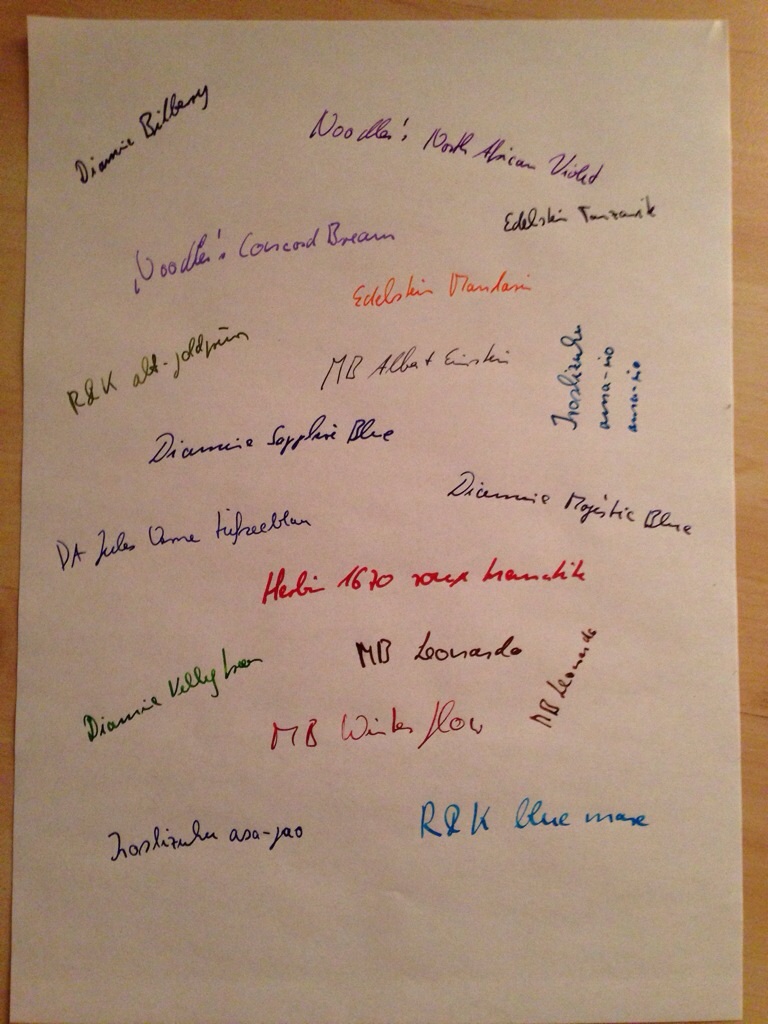 Diamine Bilberry
Noodler's North African Violet
Edelstein Tanzanit
Noodler's Concord Bream
Edelstein Mandarin
R&K alt-goldgrün
MB Albert Einstein
Iroshizuku
ama-iro
ama-iro
Diamine Sapphire Blue
Diamine Majestic Blue
DA Jules Verne tiefseeblau
Herbin 1670 rouge hematite
MB Leonardo
MB Leonardo
Diamine Kelly Green
MB Winter glow
R&K blue mare
Iroshizuku asa-gao